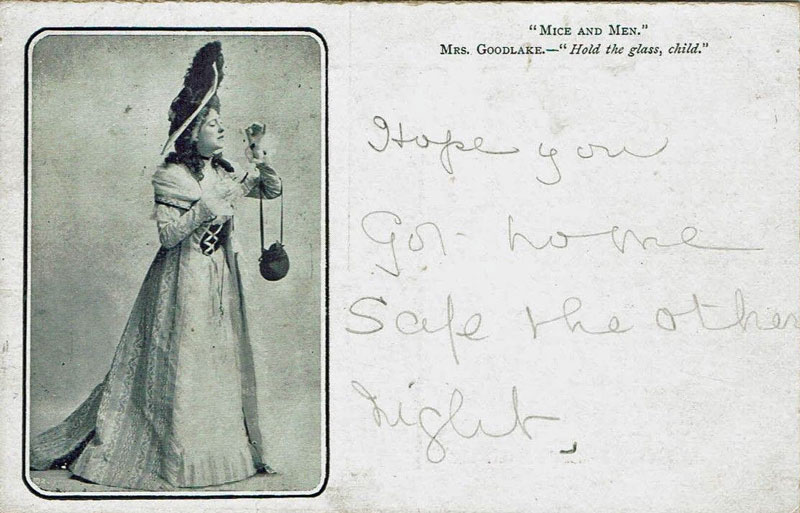 "MICE AND MEN."
MRS. GOODLAKE.—"Hold the glass, child."
Hope you
Got home
Safe the other
night.